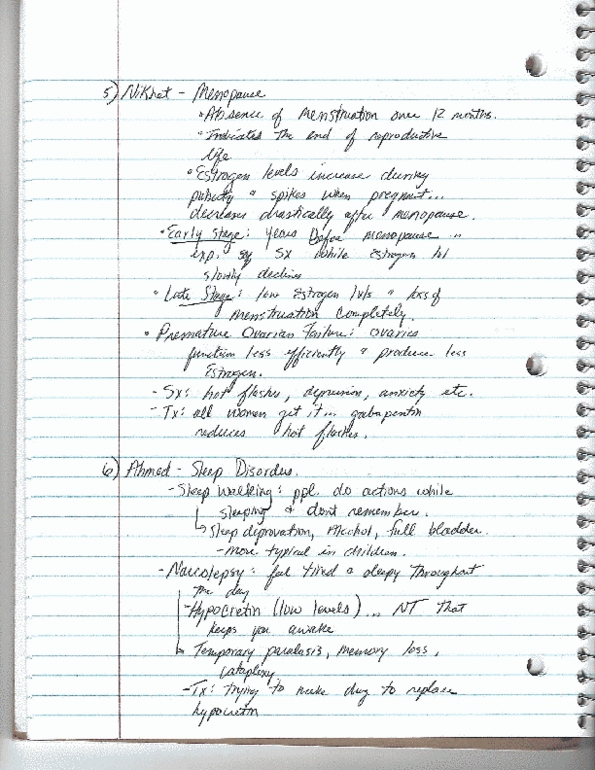 5) Nikhat - Menopause
• Absence of menstruation over 12 months.
• Indicates the end of reproductive
life
• Estrogen levels increase during
puberty & spikes when pregnant...
decreases drastically after menopause.
• Early Stage: years before menopause ..
exp. Sx while Estrogen lvl
slowly declines
• Late Stage: low Estrogen lvls & loss of
menstruation completely.
• Premature Ovarian Failure: ovaries
function less efficiently & produce less
Estrogen.
- Sx: hot flashes, depression, anxiety etc.
- Tx: all women get it... gabapentin
reduces hot flashes.
6) Ahmed - Sleep Disorders.
- Sleep walking: ppl. do actions while
sleeping & dont remember.
↳ Sleep deprovation, Alcohol, full bladder.
- more typical in children.
- Narcolepsy: feel tired & sleepy throughout
the day
- Hypocretin (low levels)... NT that
keeps you awake
↳ Temporary paralasis, memory loss,
cataplexy
- Tx: trying to make drug to replace
hypocretin